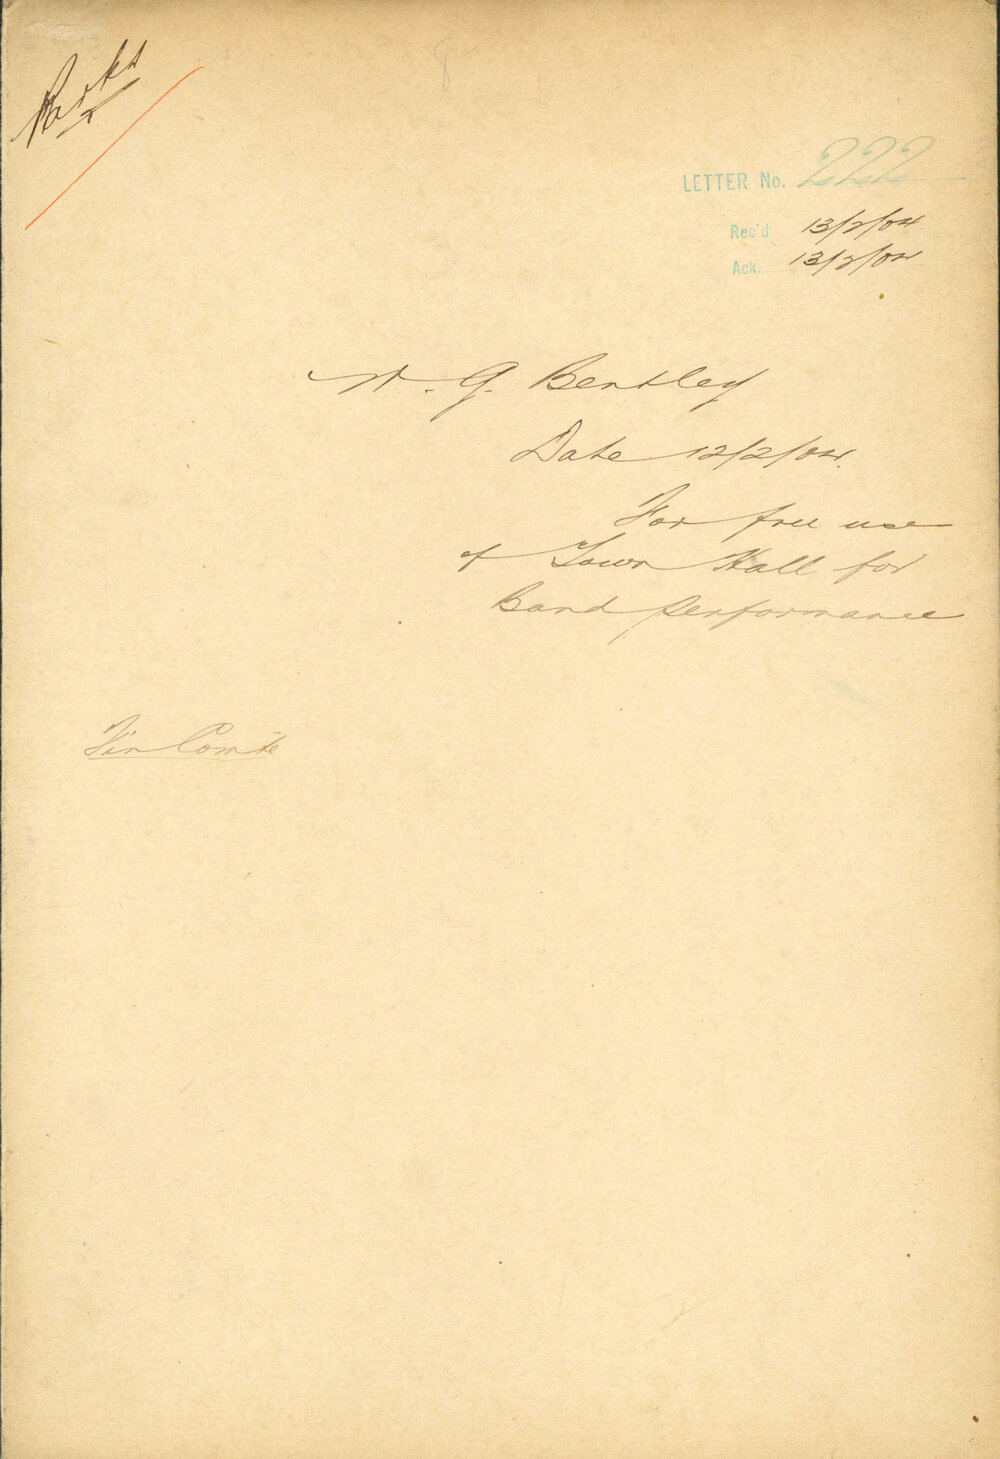 Parks
LETTER No. 222
Rec'd 13/2/04
Ack. 13/2/04
W. G. Bentley
Date 12/2/04.
For free use
of Town Hall for
Band Performance
Fin Comte